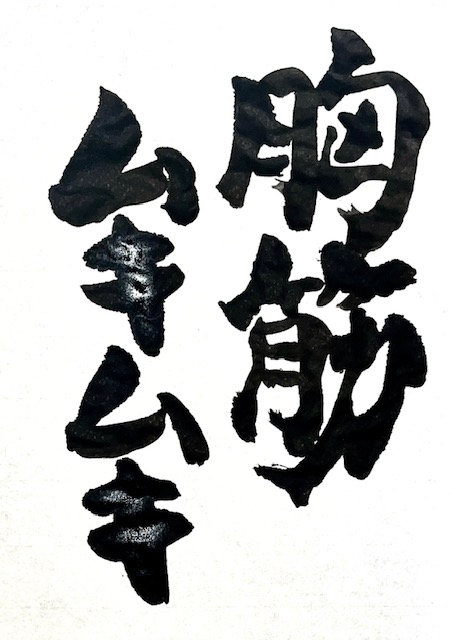 胸筋
ムキムキ